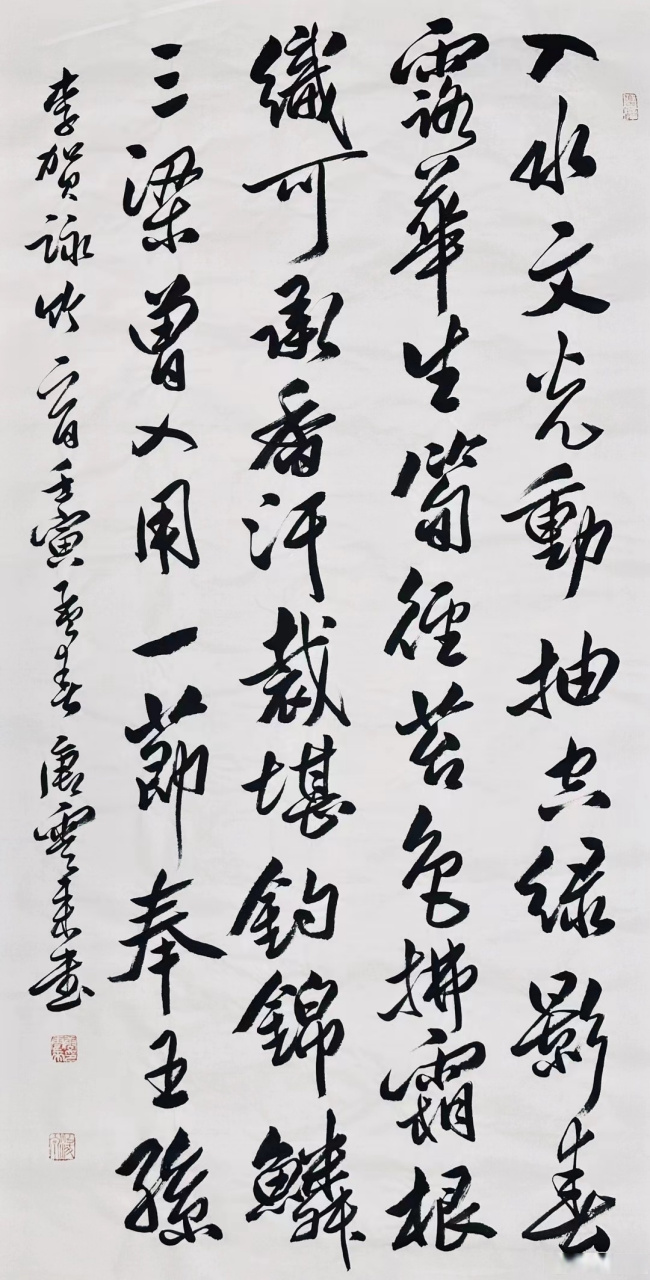 入水文光動抽空綠影春
露華生筍徑苔色拂霜根
織可承香汗裁堪釣錦鱗
三梁曾入用一節奉王孫
李賀詠竹一首壬寅孟春唐雲來書